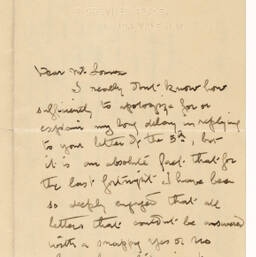 Dear Mr.
I really don't know how
sufficiently to apologize for or
explain my long delay in replying
to your letter of the 3d, but
it is an absolute fact that for
the last fortnight I have been
so deeply engaged that all
letters that couldn't be answered
with a snappy yes or no